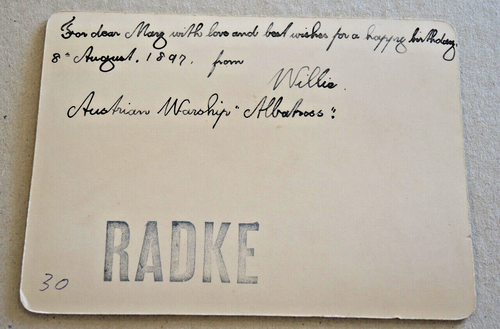 For dear May with love and best wishes for a happy birthday,
8th August, 1897. from
Willie.
Austrian Warship "Albatross".
RADKE
30